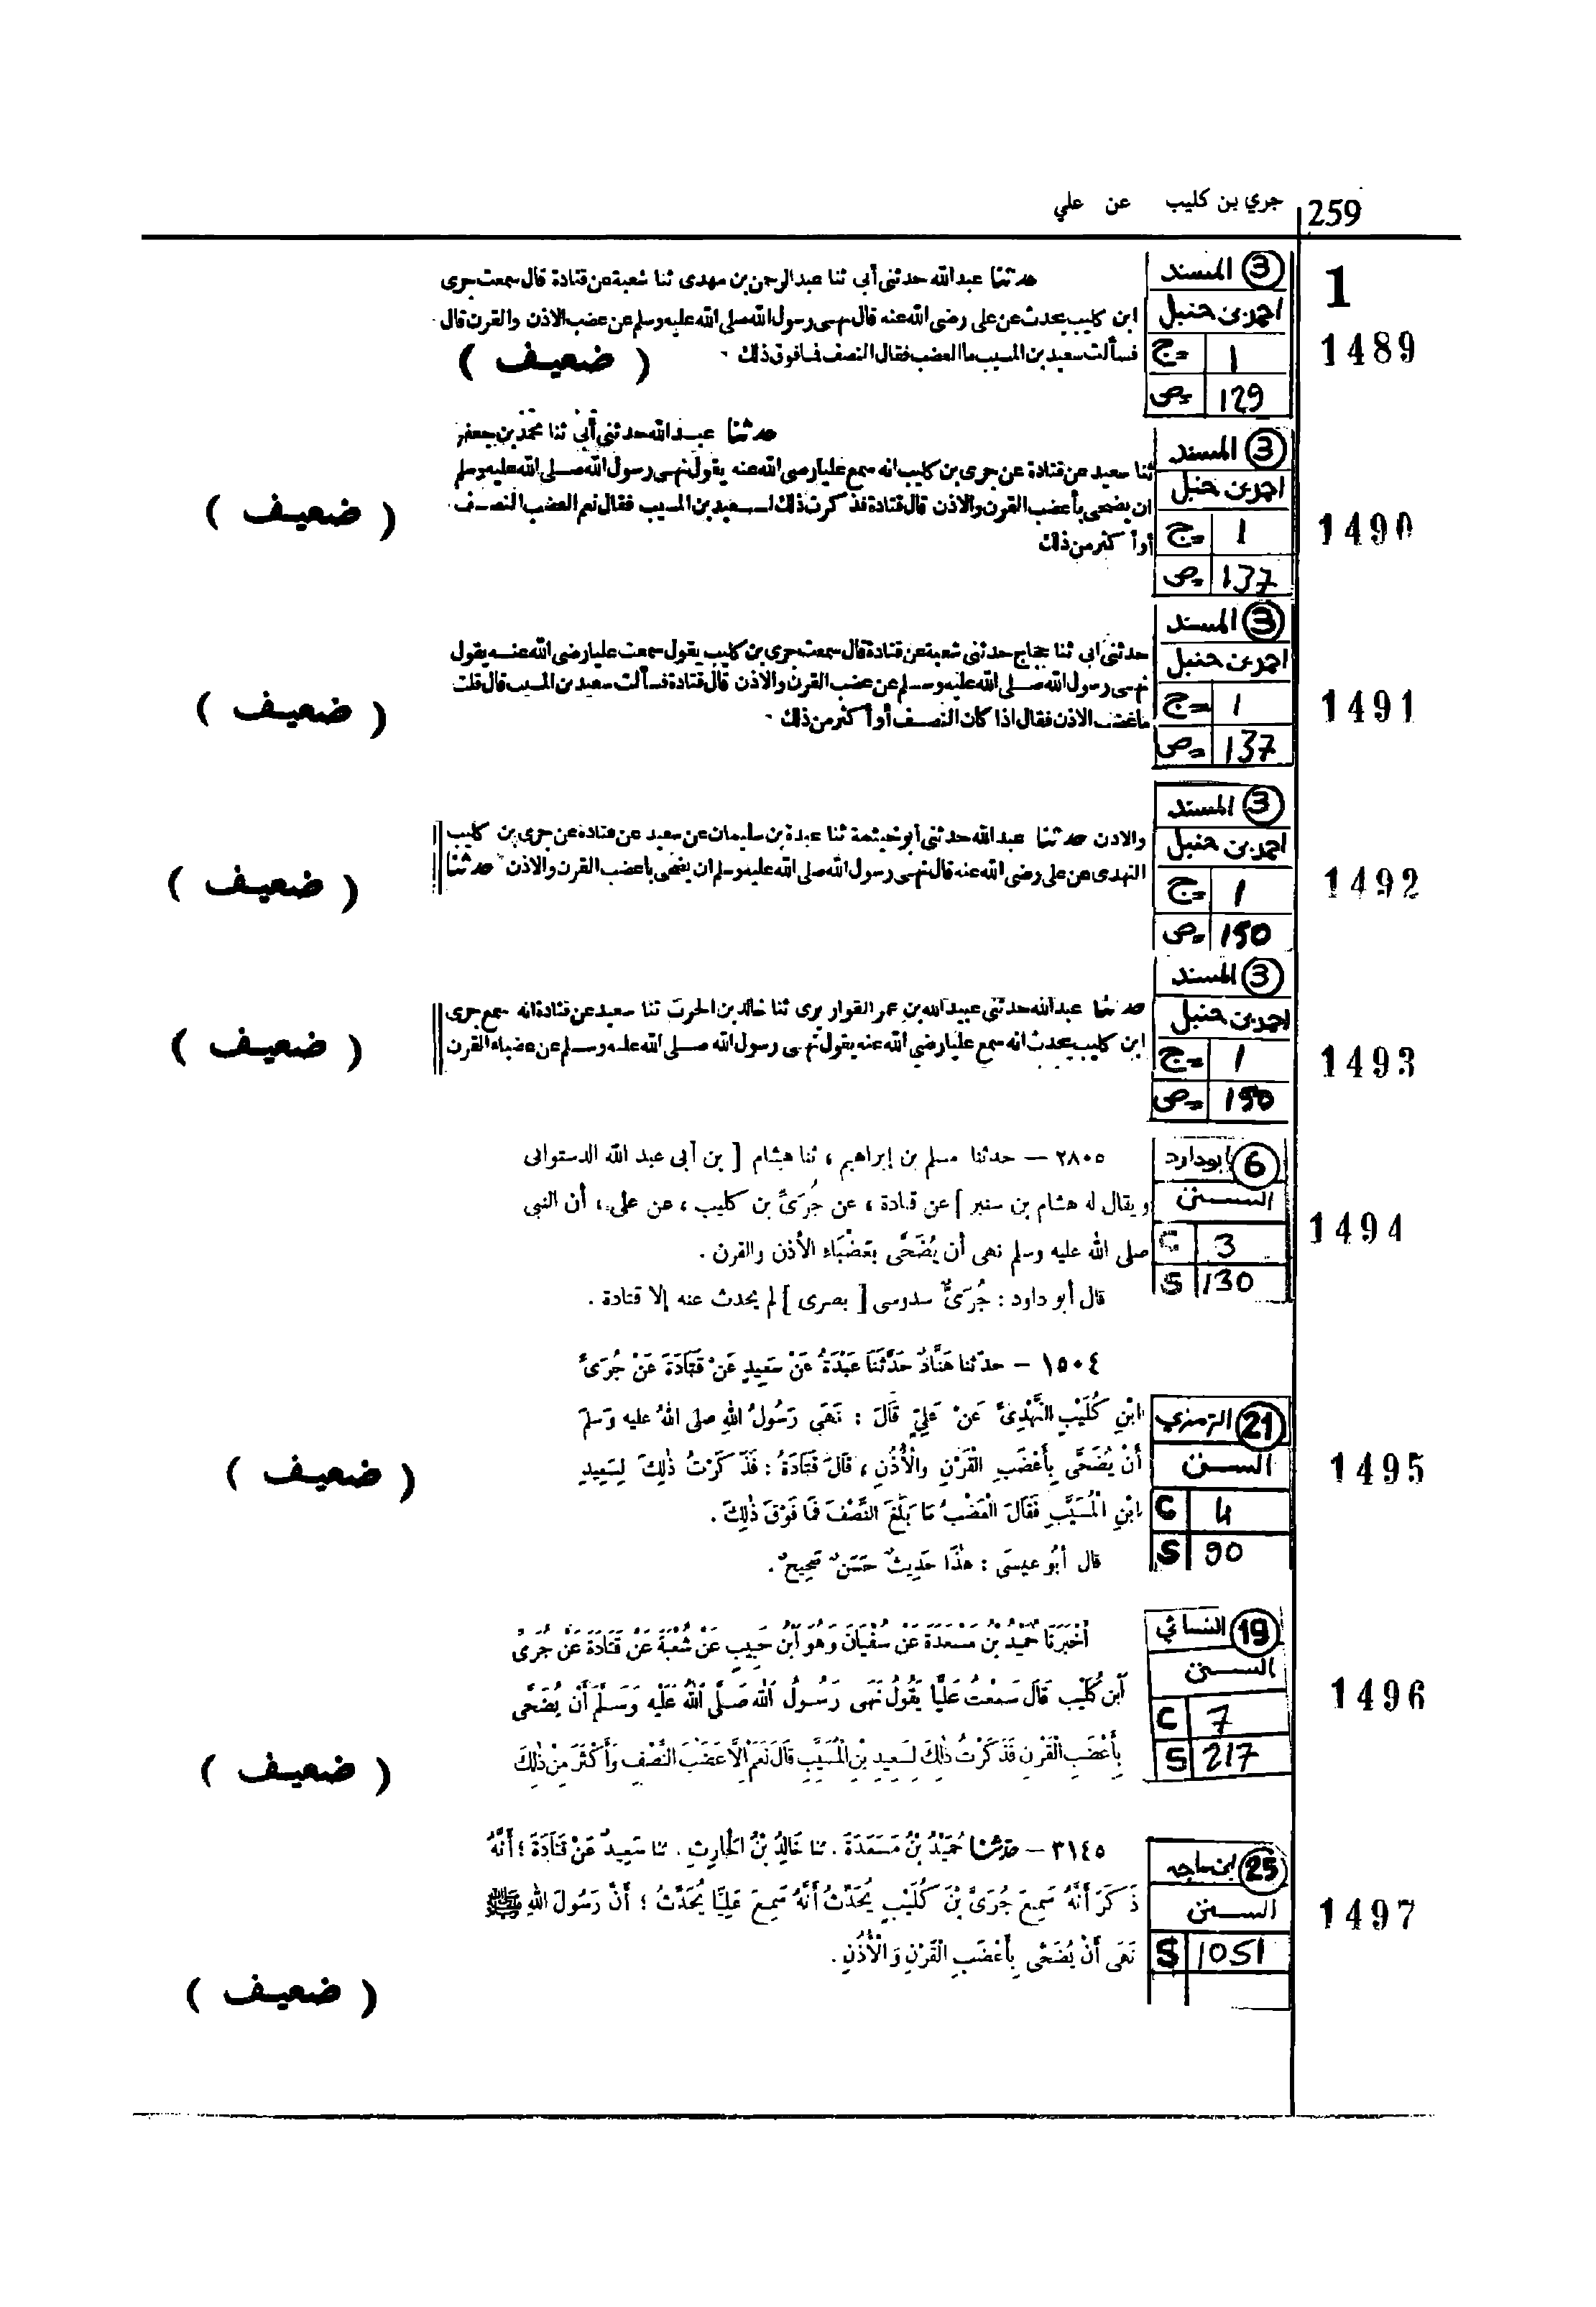 259 جري بن كليب عن علي
1
1489
3 المسند
احمد بن حنبل
ج 1
ص 129
حدثنا عبدالله حدثني أبي ثنا عبدالرحمن بن مهدى ثنا شعبة عن قتادة قال سمعت جرى
ابن كليب يحدث عن على رضى الله عنه قال نهى رسول الله صلى الله عليه وسلم عن عضب الاذن والقرن قال
فسألت سعيد بن المسيب ما العضب فقال النصف فما فوق ذلك
( ضعيف )
1490
3 المسند
احمد بن حنبل
ج 1
ص 137
حدثنا عبدالله حدثني أبي ثنا محمد بن جعفر
ثنا سعيد عن قتادة عن جرى بن كليب انه سمع عليا رضى الله عنه يقول نهى رسول الله صلى الله عليه وسلم
ان يضحى بأعضب القرن والاذن قال قتادة فذكرت ذلك لسعيد بن المسيب فقال نعم العضب النصف
أو أكثر من ذلك
( ضعيف )
1491
3 المسند
احمد بن حنبل
ج 1
ص 137
حدثني ابى ثنا حجاج حدثنى شعبة عن قتادة قال سمعت جرى بن كليب يقول سمعت عليا رضى الله عنه يقول
نهى رسول الله صلى الله عليه وسلم عن عضب القرن والاذن قال قتادة فسألت سعيد بن المسيب قال قلت
ما عضب الاذن فقال اذا كان النصف أو أكثر من ذلك
( ضعيف )
1492
3 المسند
احمد بن حنبل
ج 1
ص 150
والاذن حدثنا عبدالله حدثنى أبو خيثمة ثنا عبدة بن سليمان عن سعيد عن قتادة عن جرى بن كليب
النهدى عن على رضى الله عنه قال نهى رسول الله صلى الله عليه وسلم ان يضحى باعضب القرن والاذن حدثنا
( ضعيف )
1493
3 المسند
احمد بن حنبل
ج 1
ص 150
حدثنا عبدالله حدثنى عبيدالله بن عمر القواريرى ثنا خالد بن الحرث ثنا سعيد عن قتادة انه سمع جرى
ابن كليب يحدث انه سمع عليا رضي الله عنه يقول نهى رسول الله صلى الله عليه وسلم عن عضباء القرن
( ضعيف )
1494
6 ابو داود
السنن
C 3
S 130
٢٨٠٥ – حدثنا مسلم بن إبراهيم ، ثنا هشام [ بن أبى عبد الله الدستوائى
ويقال له هشام بن سنبر ] عن قتادة ، عن جُرَىِّ بن كليب ، عن على ، أن النبي
صلى الله عليه وسلم نهى أن يُضَحَّى بِعَضْبَاءِ الأذن والقرن .
قال أبو داود : جُرَىٌّ سدوسى [ بصرى ] لم يحدث عنه إلا قتادة .
1495
21 الترمذي
السنن
C 4
S 90
١٥٠٤ – حدّثنا هَنَّادٌ حَدَّثَنَا عَبْدَةُ عَنْ سَعِيدٍ عَنْ قَتَادَةَ عَنْ جُرَىِّ
ابْنِ كُلَيْبٍ النَّهْدِىِّ عَنْ عَلِىٍّ قَالَ : نَهَى رَسُولُ اللهِ صلى اللهُ عليه وَسَلم
أَنْ يُضَحَّى بِأَعْضَبِ الْقَرْنِ والْأُذُنِ ، قَالَ قَتَادَةُ : فَذَكَرْتُ ذٰلِكَ لِسَعِيدِ
ابْنِ الْمُسَيَّبِ فَقَالَ الْعَضْبُ مَا بَلَغَ النِّصْفَ فَمَا فَوْقَ ذٰلِكَ .
قال أبُو عيسَى : هٰذَا حَدِيثٌ حَسَنٌ صَحِيحٌ .
( ضعيف )
1496
19 النسائي
السنن
C 7
S 217
أَخْبَرَنَا حُمَيْدُ بْنُ مَسْعَدَةَ عَنْ سُفْيَانَ وَهُوَ ابْنُ حَبِيبٍ عَنْ شُعْبَةَ عَنْ قَتَادَةَ عَنْ جُرَىِّ
ابْنِ كُلَيْبٍ قَالَ سَمِعْتُ عَلِيًّا يَقُولُ نَهَى رَسُولُ اللهِ صَلَّى اللهُ عَلَيْهِ وَسَلَّمَ أَنْ يُضَحَّى
بِأَعْضَبِ الْقَرْنِ فَذَكَرْتُ ذٰلِكَ لِسَعِيدِ بْنِ الْمُسَيَّبِ قَالَ نَعَمْ إِلَّا عَضَبَ النِّصْفِ وَأَكْثَرَ مِنْ ذٰلِكَ
( ضعيف )
1497
25 ابن ماجه
السنن
S 1051
٣١٤٥ – حدّثنا حُمَيْدُ بْنُ مَسْعَدَةَ . ثنا خَالِدُ بْنُ الْحَارِثِ . ثنا سَعِيدٌ عَنْ قَتَادَةَ ؛ أَنَّهُ
ذَكَرَ أَنَّهُ سَمِعَ جُرَىَّ بْنَ كُلَيْبٍ يُحَدِّثُ أَنَّهُ سَمِعَ عَلِيًّا يُحَدِّثُ ؛ أَنَّ رَسُولَ اللهِ ﷺ
نَهَى أَنْ يُضَحَّى بِأَعْضَبِ الْقَرْنِ وَالْأُذُنِ .
( ضعيف )